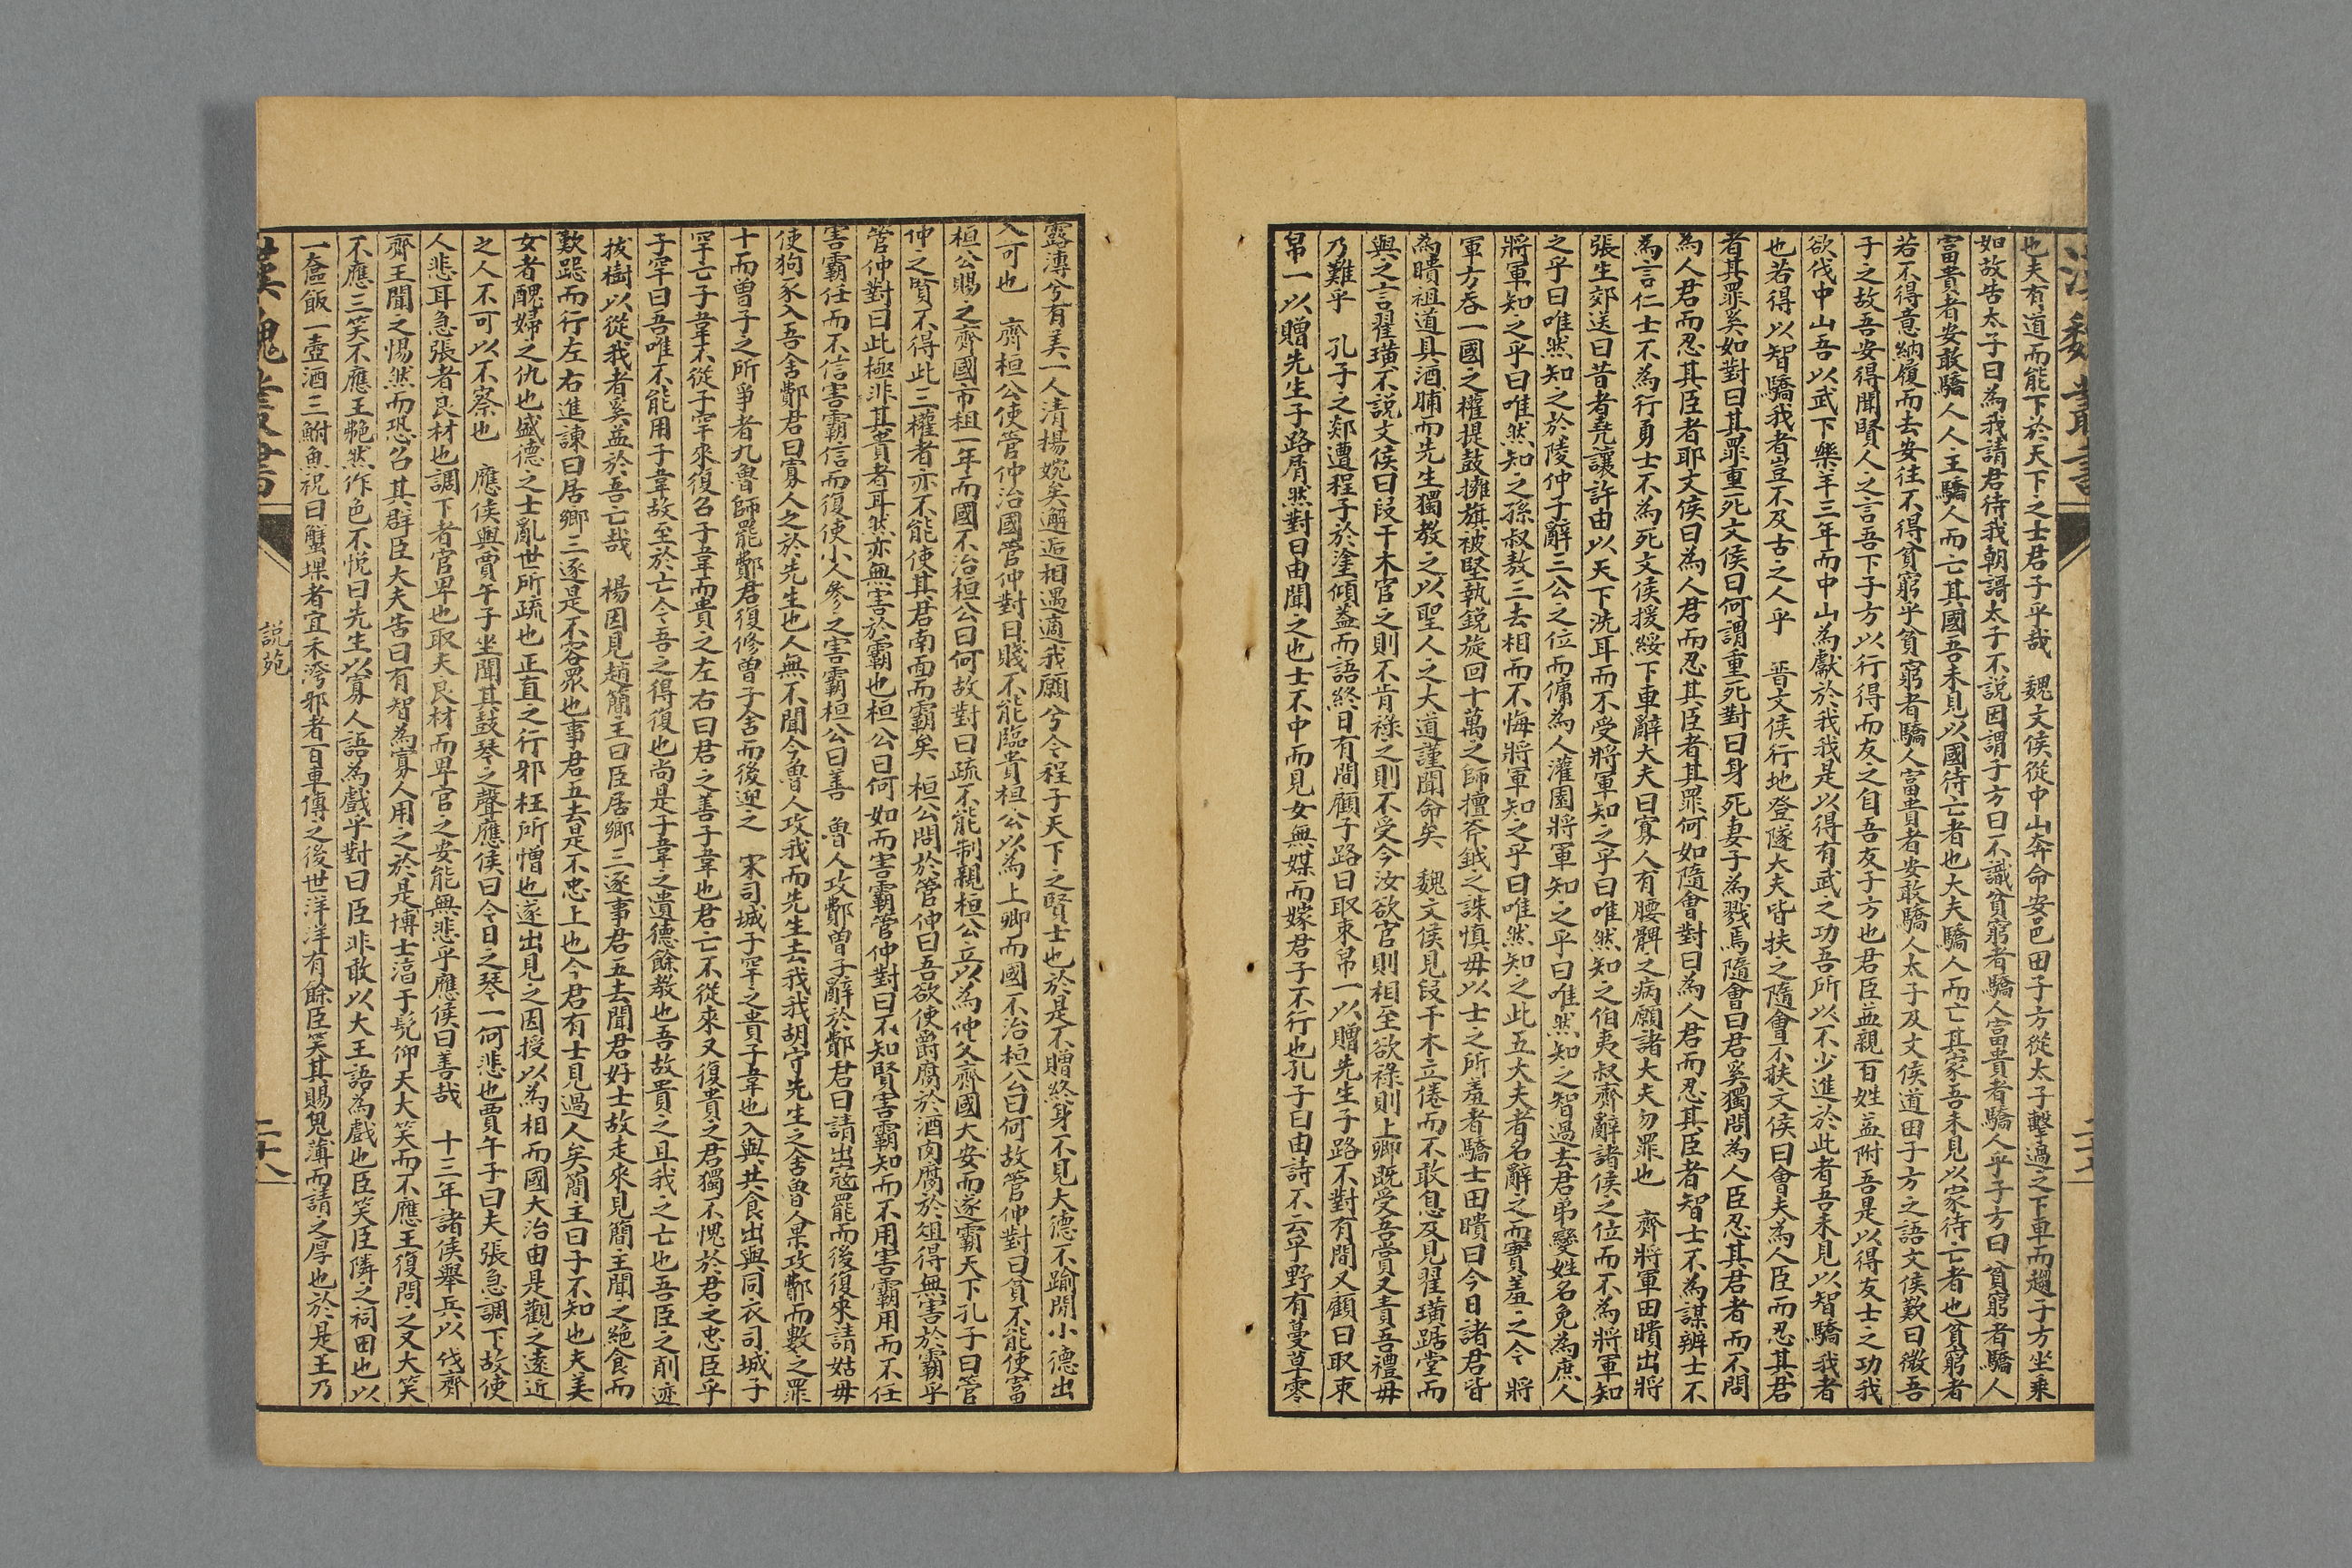 漢魏叢書
也夫有道而能下於天下之士君子乎哉　魏文侯從中山奔命安邑田子方從太子擊過之下車而趨子方坐乘
如故告太子曰為我請君待我朝謌太子不說因謂子方曰不識貧窮者驕人富貴者驕人乎子方曰貧窮者驕人
富貴者安敢驕人人主驕人而亡其國吾未見以國待亡者也大夫驕人而亡其家吾未見以家待亡者也貧窮者
若不得意納履而去安往不得貧窮乎貧窮者驕人富貴者安敢驕人太子及文侯道田子方之語文侯歎曰微吾
子之故吾安得聞賢人之言吾下子方以行得而友之自吾友子方也君臣益親百姓益附吾是以得友士之功我
欲伐中山吾以武下樂羊三年而中山為獻於我我是以得有武之功吾所以不少進於此者吾未見以智驕我者
也若得以智驕我者豈不及古之人乎　晉文侯行地登隧大夫皆扶之隨會不扶文侯曰會夫為人臣而忍其君
者其罪奚如對曰其罪重死文侯曰何謂重死對曰身死妻子為戮焉隨會曰君奚獨問為人臣忍其君者而不問
為人君而忍其臣者耶文侯曰為人君而忍其臣者其罪何如隨會對曰為人君而忍其臣者智士不為謀辨士不
為言仁士不為行勇士不為死文侯援綏下車辭大夫曰寡人有腰髀之病願諸大夫勿罪也　齊將軍田瞶出將
張生郊送曰昔者堯讓許由以天下洗耳而不受將軍知之乎曰唯然知之伯夷叔齊辭諸侯之位而不為將軍知
之乎曰唯然知之於陵仲子辭三公之位而傭為人灌園將軍知之乎曰唯然知之智過去君弟變姓名免為庶人
將軍知之乎曰唯然知之孫叔敖三去相而不悔將軍知之乎曰唯然知之此五大夫者名辭之而實羞之今將
軍方吞一國之權提鼓擁旗被堅執銳旋回十萬之師擅斧鉞之誅慎毋以士之所羞者驕士田瞶曰今日諸君皆
為瞶祖道具酒脯而先生獨教之以聖人之大道謹聞命矣　魏文侯見段干木立倦而不敢息及見翟璜踞堂而
與之言翟璜不說文侯曰段干木官之則不肯祿之則不受今汝欲官則相至欲祿則上卿既受吾賞又責吾禮毋
乃難乎　孔子之郯遭程子於塗傾蓋而語終日有間顧子路曰取束帛一以贈先生子路不對有間又顧曰取束
帛一以贈先生子路屑然對曰由聞之也士不中而見女無媒而嫁君子不行也孔子曰由詩不云乎野有蔓草零
露漙兮有美一人清揚婉矣邂逅相遇適我願兮今程子天下之賢士也於是不贈終身不見大德不踰閑小德出
入可也　齊桓公使管仲治國管仲對曰賤不能臨貴桓公以為上卿而國不治桓公曰何故管仲對曰貧不能使富
桓公賜之齊國市租一年而國不治桓公曰何故對曰疏不能制親桓公立以為仲父齊國大安而遂霸天下孔子曰管
仲之賢不得此三權者亦不能使其君南面而霸矣　桓公問於管仲曰吾欲使爵腐於酒肉腐於俎得無害於霸乎
管仲對曰此極非其貴者耳然亦無害於霸也桓公曰何如而害霸管仲對曰不知賢害霸知而不用害霸用而不任
害霸任而不信害霸信而復使小人參之害霸桓公曰善　魯人攻鄪曾子辭於鄪君曰請出寇罷而後復來請姑毋
使狗豕入吾舍鄪君曰寡人之於先生也人無不聞今魯人攻我而先生去我我胡守先生之舍魯人果攻鄪而數之罪
十而曾子之所爭者九魯師罷鄪君復修曾子舍而後迎之　宋司城子罕之貴子韋也入與共食出與同衣司城子
罕亡子韋不從子罕來復召子韋而貴之左右曰君之善子韋也君亡不從來又復貴之君獨不愧於君之忠臣乎
子罕曰吾唯不能用子韋故至於亡今吾之得復也尚是子韋之遺德餘教也吾故貴之且我之亡也吾臣之削迹
拔樹以從我者奚益於吾亡哉　楊因見趙簡主曰臣居鄉三逐事君五去聞君好士故走來見簡主聞之絕食而
歎跽而行左右進諫曰居鄉三逐是不容眾也事君五去是不忠上也今君有士見過人矣簡主曰子不知也夫美
女者醜婦之仇也盛德之士亂世所疏也正直之行邪枉所憎也遂出見之因授以為相而國大治由是觀之遠近
之人不可以不察也　應侯與賈午子坐聞其鼓琴之聲應侯曰今日之琴一何悲也賈午子曰夫張急調下故使
人悲耳急張者良材也調下者官卑也取夫良材而卑官之安能無悲乎應侯曰善哉　十三年諸侯舉兵以伐齊
齊王聞之惕然而恐召其群臣大夫告曰有智為寡人用之於是博士淳于髡仰天大笑而不應王復問之又大笑
不應三笑不應王艴然作色不悅曰先生以寡人語為戲乎對曰臣非敢以大王語為戲也臣笑臣隣之祠田也以
一奩飯一壺酒三鮒魚祝曰蟹堁者宜禾洿邪者百車傳之後世洋洋有餘臣笑其賜鬼薄而請之厚也於是王乃
漢魏叢書
說苑
二十八